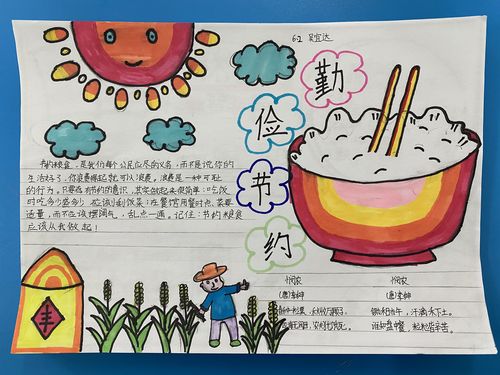 6.2 吴宜达
勤
俭
节
约
节约粮食,是我们每个公民应尽的义务,而不是说你的
生活好了,你浪费得起就可以浪费,浪费是一种可耻
的行为。只要存有节约的意识,其实做起来很简单:吃饭
时吃多少盛多少,不应该剩饭菜;在餐馆用餐时点菜要
适量,而不应该摆阔气,乱点一通。记住:节约粮食
应该从我做起!
丰
悯农
(唐)李绅
春种一粒粟,秋收万颗子。
四海无闲田,农夫犹饿死。
悯农
(唐)李绅
锄禾日当午,汗滴禾下土。
谁知盘中餐,粒粒皆辛苦。